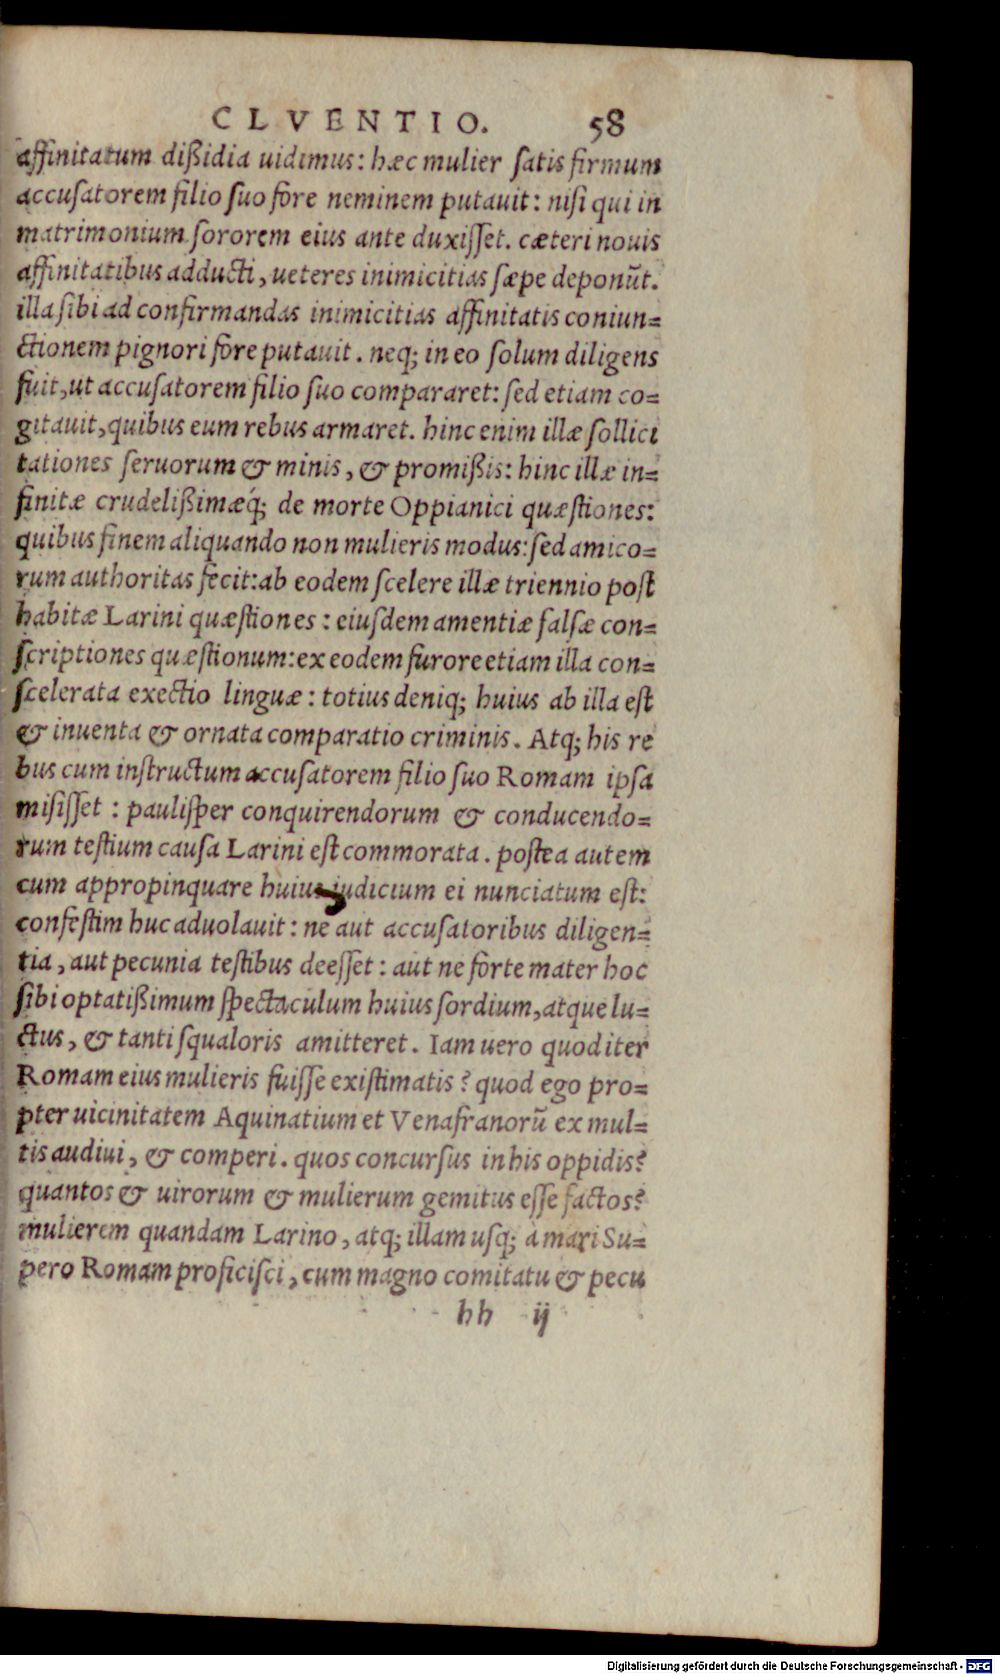 CLVENTIO. 58
affinitatum dißidia uidimus: hæc mulier ſatis firmum
accuſatorem filio ſuo fore neminem putauit: niſi qui in
matrimonium ſororem eius ante duxiſſet. cæteri nouis
affinitatibus adducti, ueteres inimicitias ſæpe deponũt.
illa ſibi ad confirmandas inimicitias affinitatis coniun=
ctionem pignori fore putauit. neq; in eo ſolum diligens
fuit, ut accuſatorem filio ſuo compararet: ſed etiam co=
gitauit, quibus eum rebus armaret. hinc enim illæ ſollici
tationes ſeruorum & minis, & promißis: hinc illæ in=
finitæ crudelißimæq́; de morte Oppianici quæſtiones:
quibus finem aliquando non mulieris modus: ſed amico=
rum authoritas fecit: ab eodem ſcelere illæ triennio poſt
habitæ Larini quæſtiones: eiuſdem amentiæ falſæ con=
ſcriptiones quæſtionum: ex eodem furore etiam illa con=
ſcelerata exectio linguæ: totius deniq; huius ab illa eſt
& inuenta & ornata comparatio criminis. Atq; his re
bus cum inſtructum accuſatorem filio ſuo Romam ipſa
miſiſſet: pauliſper conquirendorum & conducendo=
rum teſtium cauſa Larini eſt commorata. poſtea autem
cum appropinquare huius iudicium ei nunciatum eſt:
confeſtim huc aduolauit: ne aut accuſatoribus diligen=
tia, aut pecunia teſtibus deeſſet: aut ne forte mater hoc
ſibi optatißimum ſpectaculum huius ſordium, atque lu=
ctus, & tanti ſqualoris amitteret. Iam uero quod iter
Romam eius mulieris fuiſſe exiſtimatis? quod ego pro=
pter uicinitatem Aquinatium et Venafranorũ ex mul=
tis audiui, & comperi. quos concurſus in his oppidis?
quantos & uirorum & mulierum gemitus eſſe factos?
mulierem quandam Larino, atq; illam uſq; à mari Su=
pero Romam proficiſci, cum magno comitatu & pecu
hh ij
Digitalisierung gefördert durch die Deutsche Forschungsgemeinschaft - DFG